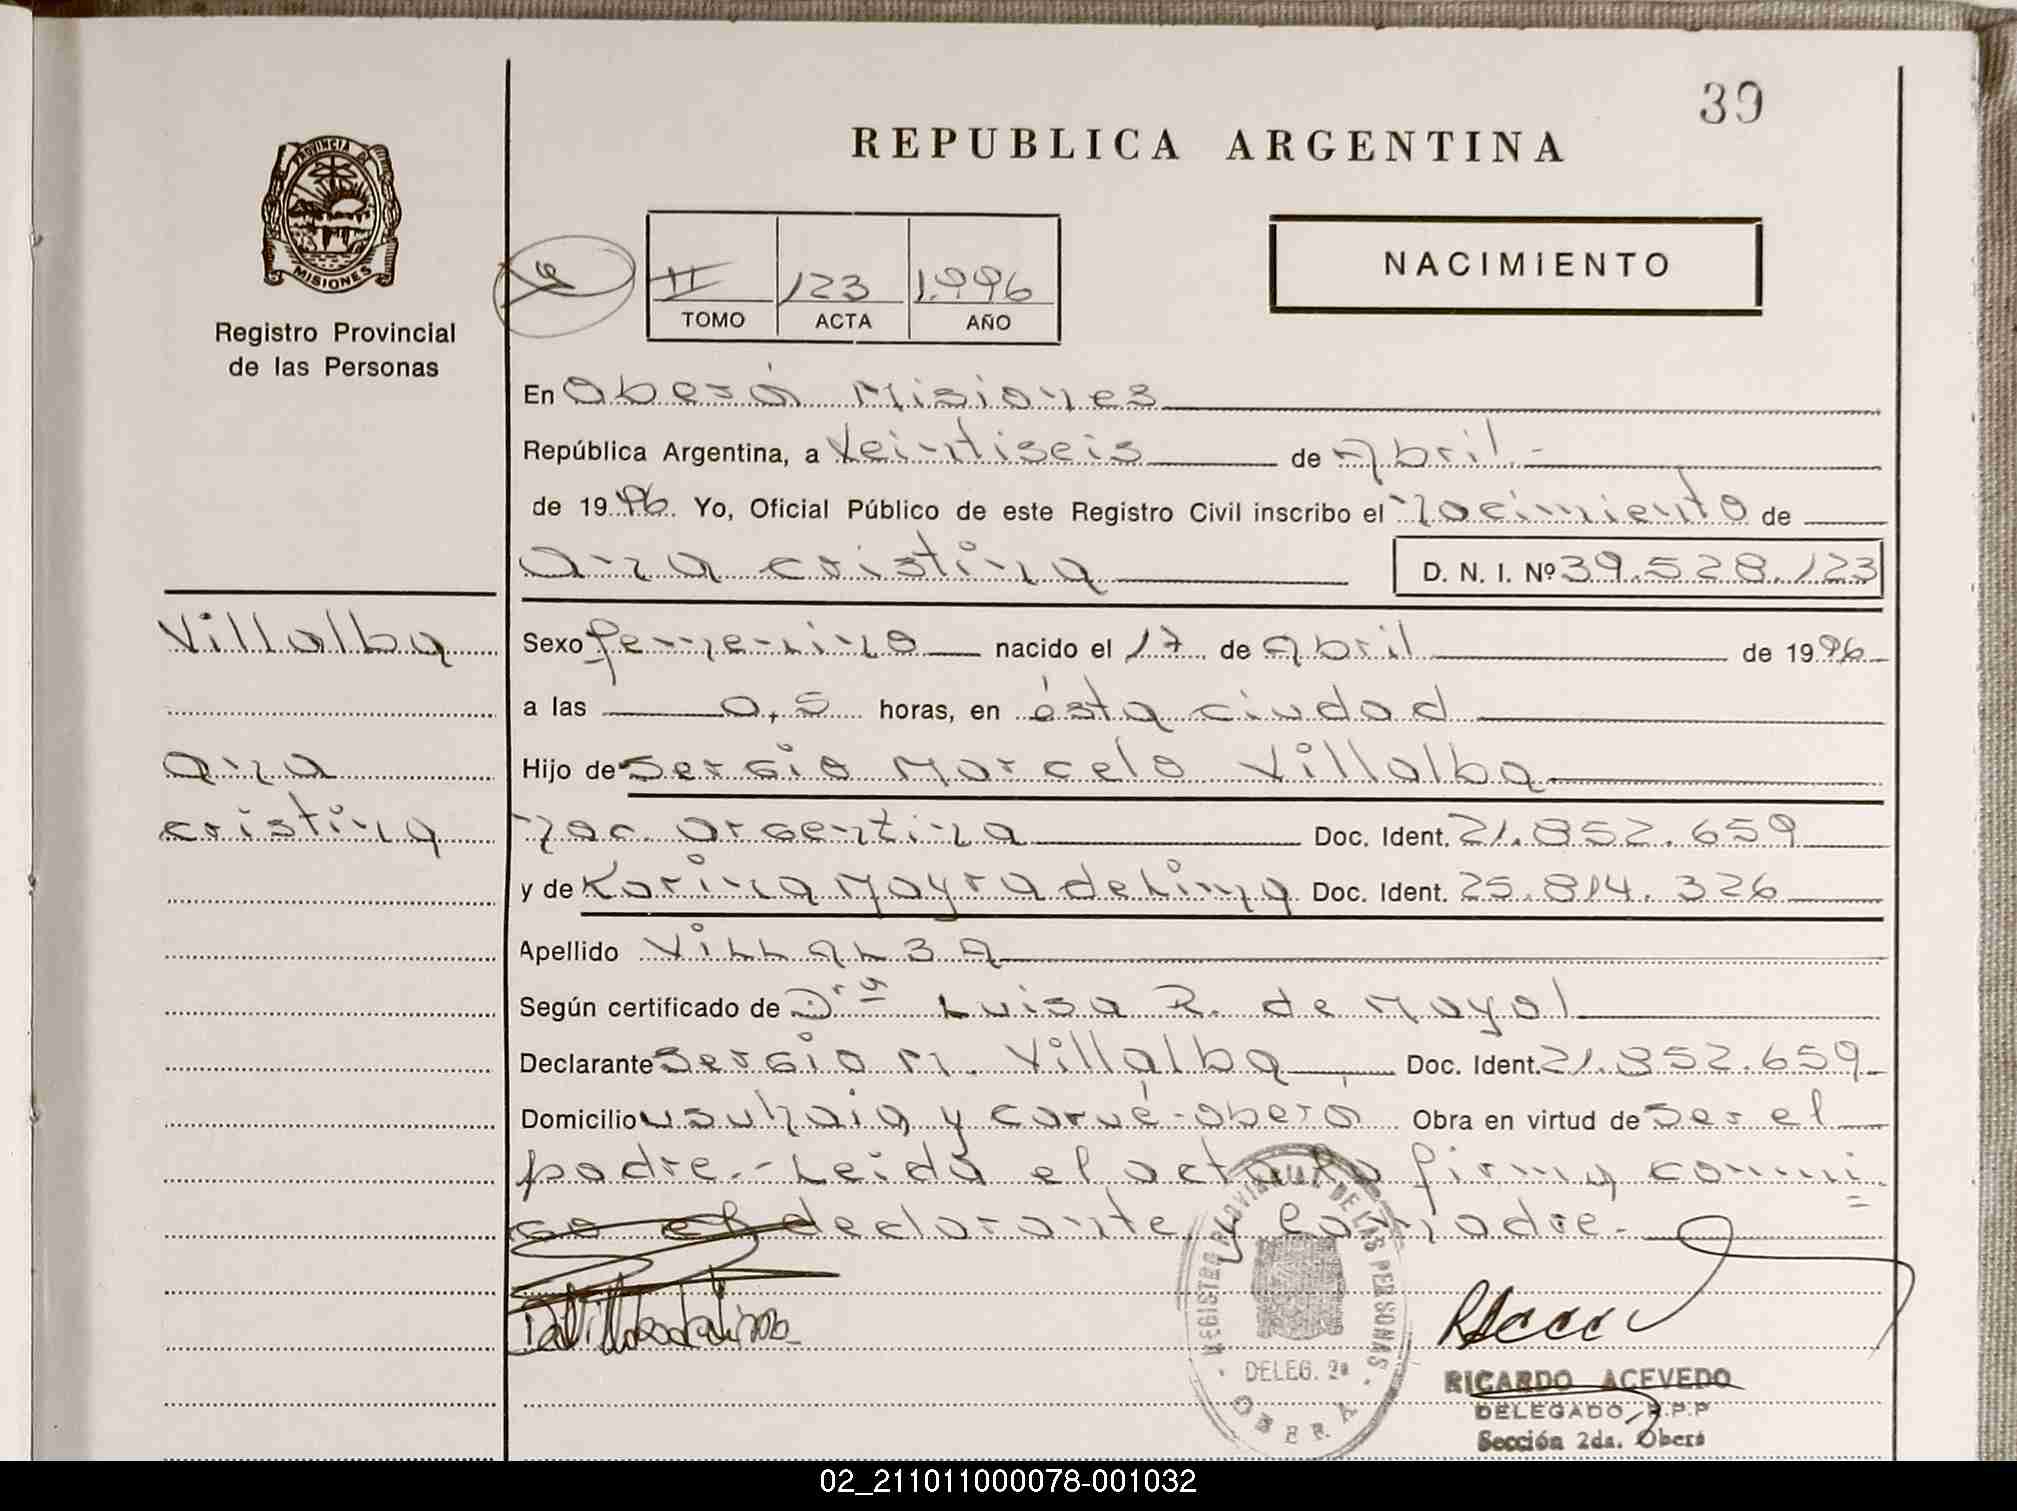 39
REPUBLICA ARGENTINA
PROVINCIA DE
MISIONES
Registro Provincial
de las Personas
NACIMIENTO
II 123 1.996
TOMO ACTA AÑO
En Oberá Misiones
República Argentina, a Veintiseis de Abril.-
de 1996. Yo, Oficial Público de este Registro Civil inscribo el nacimiento de
Ana Cristina D. N. I. Nº 39.528.123
Villalba
Sexo femenino nacido el 17 de Abril de 1996
a las 0,5 horas, en ésta ciudad
Ana
Hijo de Sergio Marcelo Villalba
Cristina
nac. argentina Doc. Ident. 21.852.659
y de Karina Mayra de Lima Doc. Ident. 25.814.326
Apellido VILLALBA
Según certificado de Dra Luisa R. de Mayol
Declarante Sergio M. Villalba Doc. Ident. 21.852.659
Domicilio Usuhaia y Carué-Oberá Obra en virtud de ser el
padre.- Leida el acta la firma conmi
go el declarante y la madre.-
REGISTRO PROVINCIAL DE LAS PERSONAS
DELEG. 2a
OBERA
RICARDO ACEVEDO
DELEGADO R.P.P
Sección 2da. Oberá
02_211011000078-001032